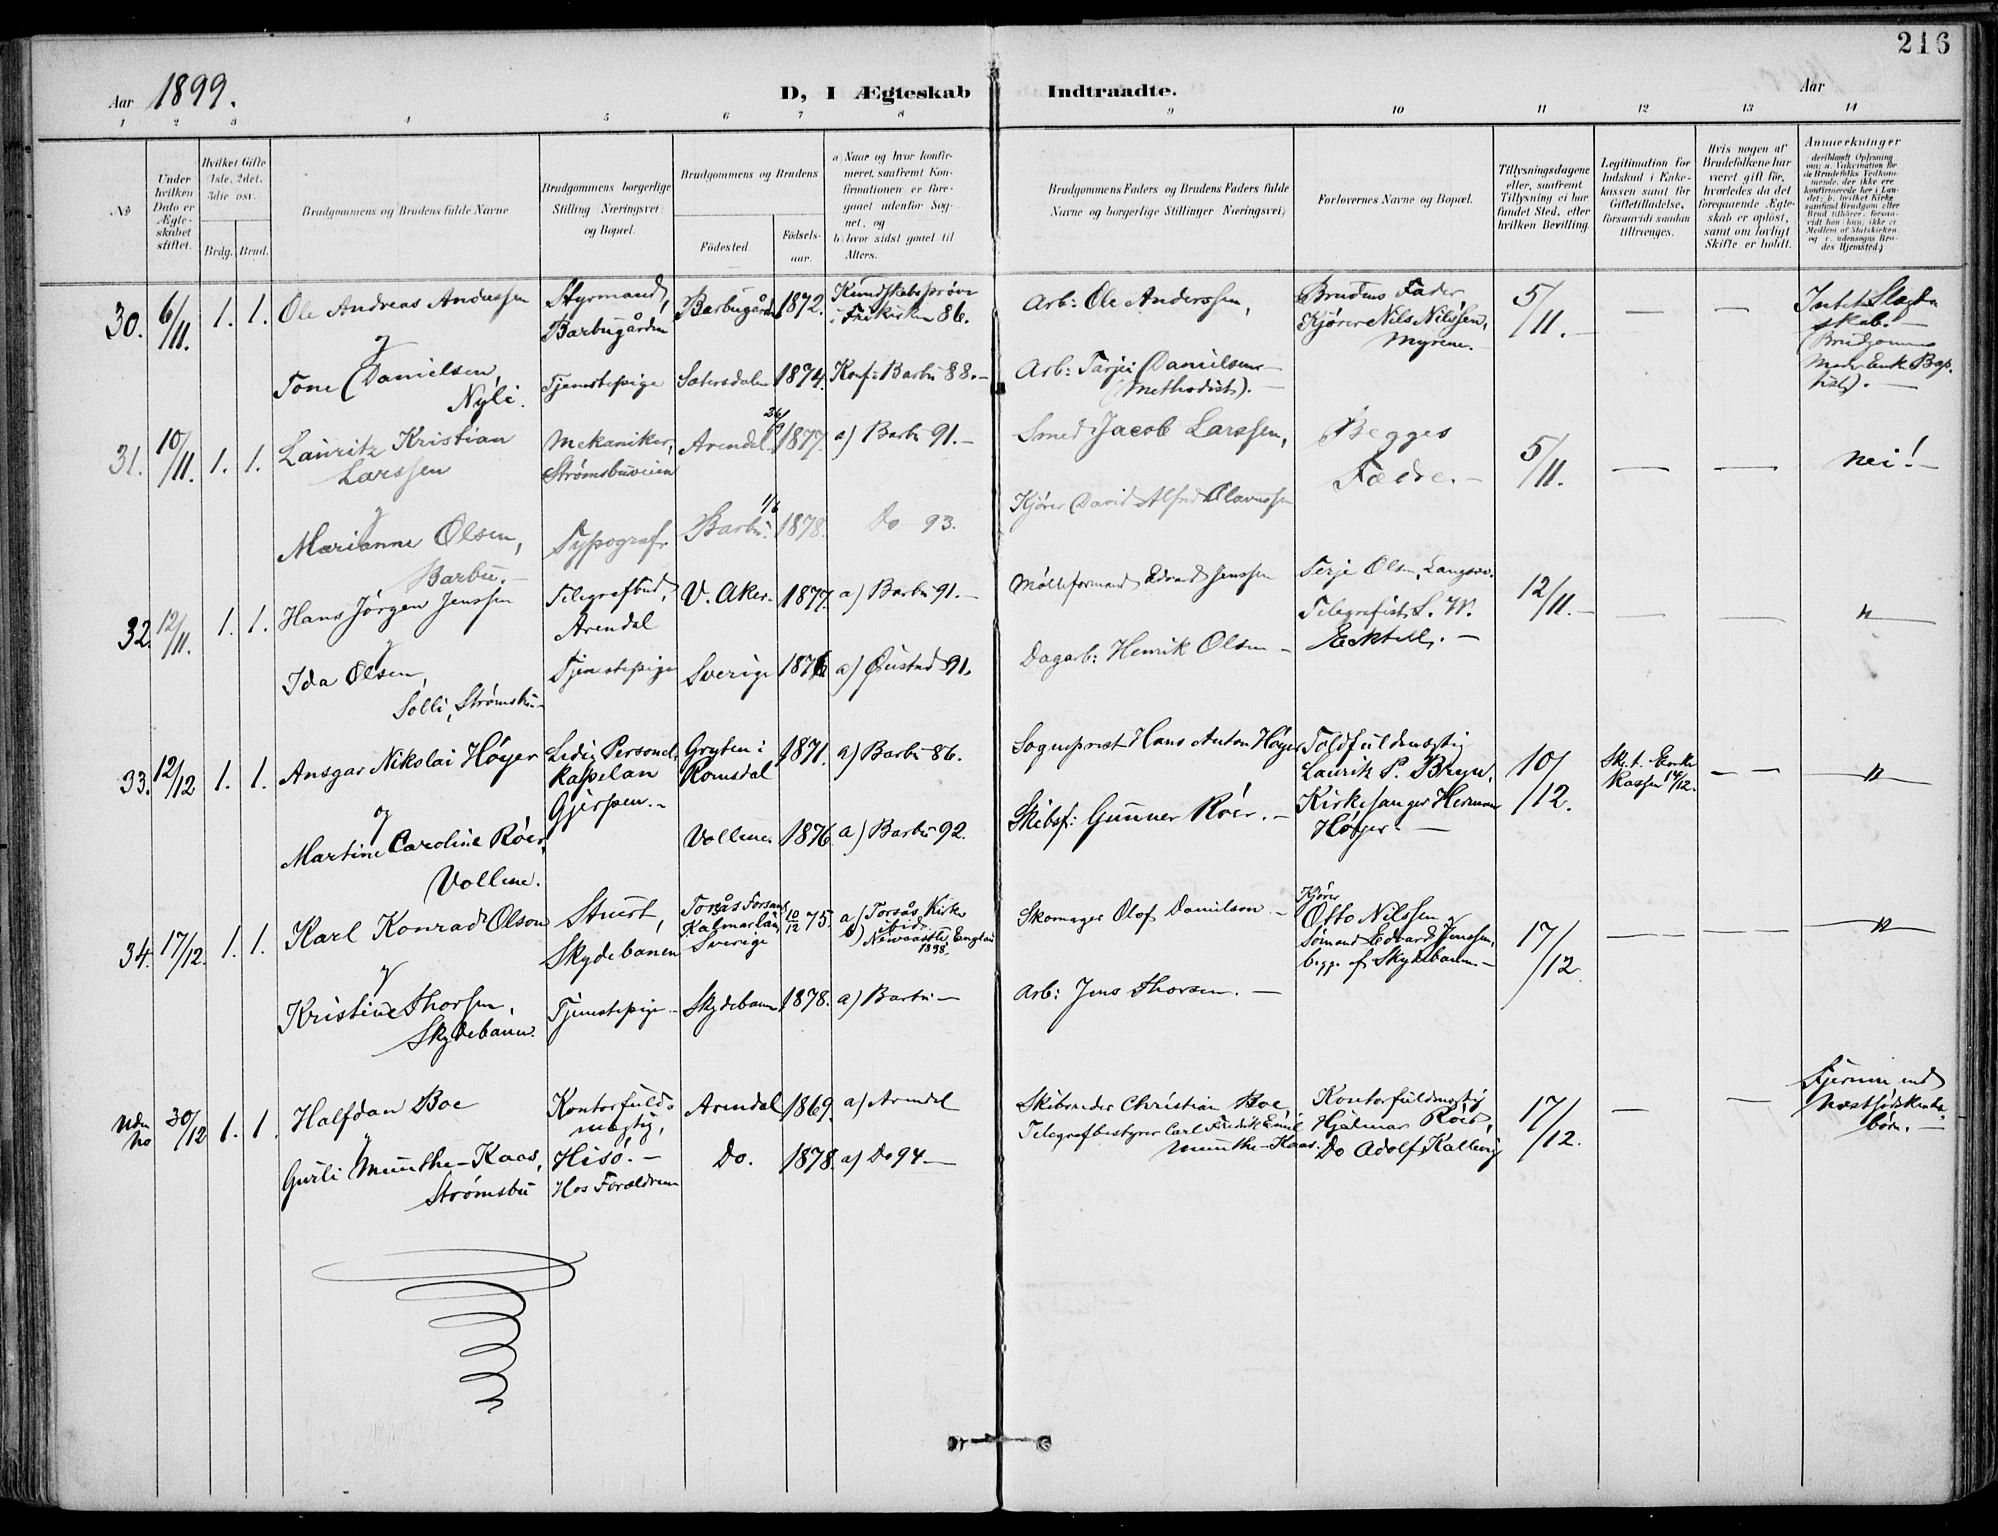 216
Aar 1899.
D, I Ægteskab Indtraadte.
Aar
1 2 3 4 5 6 7 8 9 10 11 12 13 14
No
Under hvilken Dato er Ægteskabet stiftet.
Hvilket Gifte 1ste, 2det, 3die osv.
Brdg. Brud.
Brudgommens og Brudens fulde Navne
Brudgommens borgerlige Stilling (Næringsvei) og Bopæl.
Brudgommens og Brudens
Födested.
Födsels-aar.
a) Naar og hvor konfir-
meret, saafremt Kon-
firmationen er fore-
gaaet udenfor Sog-
net, og
b) hvor sidst gaaet til
Alters.
Brudgommens Faders og Brudens Faders fulde
Navne og borgerlige Stillinger (Næringsvei)
Forlovernes Navne og Bopæl.
Tillysningsdagene
eller, saafremt
Tillysning ei har
fundet Sted, efter
hvilken Bevilling.
Legitimation for
Indskud i Enke-
kassen samt for
Giftetilladelse,
forsaavidt saadan
tiltrænges.
Hvis nogen af
Brudefolkene har
været gift för,
hvorledes da det
foregaaende Ægte-
skab er oplöst,
samt om lovligt
Skifte er holdt.
Anmerkninger
30. 6/11. 1. 1. Ole Andreas Anderssen Styrmand, Barbugården Barbugården 1872. Kundskabsprøve i Frikirken 86. Arb: Ole Anderssen, Brudens Fader Kjører Nils Nilssen, Myrene. 5/11. — — Intet Slægtskab. —
og
Tone Danielsen, Nyli. Tjenestepige Sætersdalen 1874. Konf: Barbu 88. — Arb: Tarjei Danielsen (Methodist). —
31. 10/11. 1. 1. Lauritz Kristian Larssen Mekaniker, Strømsbuveien Arendal 26/9 1877. a) Barbu 91. — Smed Jacob Larssen, Begges Fædre. — 5/11. — — nei! —
og
Marianne Olsen, Barbu. — Typograf Barbu. 1/6 1878. Do 93. Kjører David Alfred Olavessen
32. 12/11. 1. 1. Hans Jørgen Jenssen Telegrafbud, Arendal V. Aker. 1877. a) Barbu 91. — Mølleformand Edvard Jenssen Terje Olsen, Langsæ. Telegrafist L. W. Ecktell. — 12/11. — — — n
og
Ida Olsen, Solli, Strømsbu — Tjenestepige Sverige 1876 a) Øiestad 91. Dagarb: Henrik Olsen —
33. 12/12 1. 1. Ansgar Nikolai Höyer Ledig Personel-kapelan Gjerpen. — Gryten i Romsdal 1871. a) Barbu 86. Sogneprest Hans Anton Höyer Toldfuldmægtig Lauritz P. Bryn. Kirkesanger Herman Höyer. — 10/12. Sk. t. Enkekassen 14/12. — — n
og
Martine Caroline Röer, Vollene. Vollene. 1876. a) Barbu 92. Skibsf: Gunner Röer. —
34. 17/12. 1. 1. Karl Konrad Olson Stuert, Skydebanen Torsås Forsaml. Kalmar län Sverige 10/12 75. a) Torsås Kirke ibid. b) Newcastle England 1898. Skomager Olof Danielson. — Kjører Otto Nilssen og Sømand Edvard Jenssen, begge af Skydebanen. — 17/12 — — — n
og
Kristine Thorsen, Skydebanen. Tjenestepige — Skydebanen 1878. a) Barbu — Arb: Jens Thorsen. —
Uden No 30/12 1. 1. Halfdan Boe Kontorfuldmægtig, Hisö. — Arendal 1869. a) Arendal Skibsreder Christian Boe Kontorfuldmægtig Hjalmar Röer, Do Adolf Kallevig 17/12. — — Fjernere end Næstsödskendebörn. —
og
Gurli Munthe-Kaas, Strømsbu Hos Forældrene Do. 1878. a) Do 94 — Telegrafbestyrer Carl Fredrik Emil Munthe-Kaas.